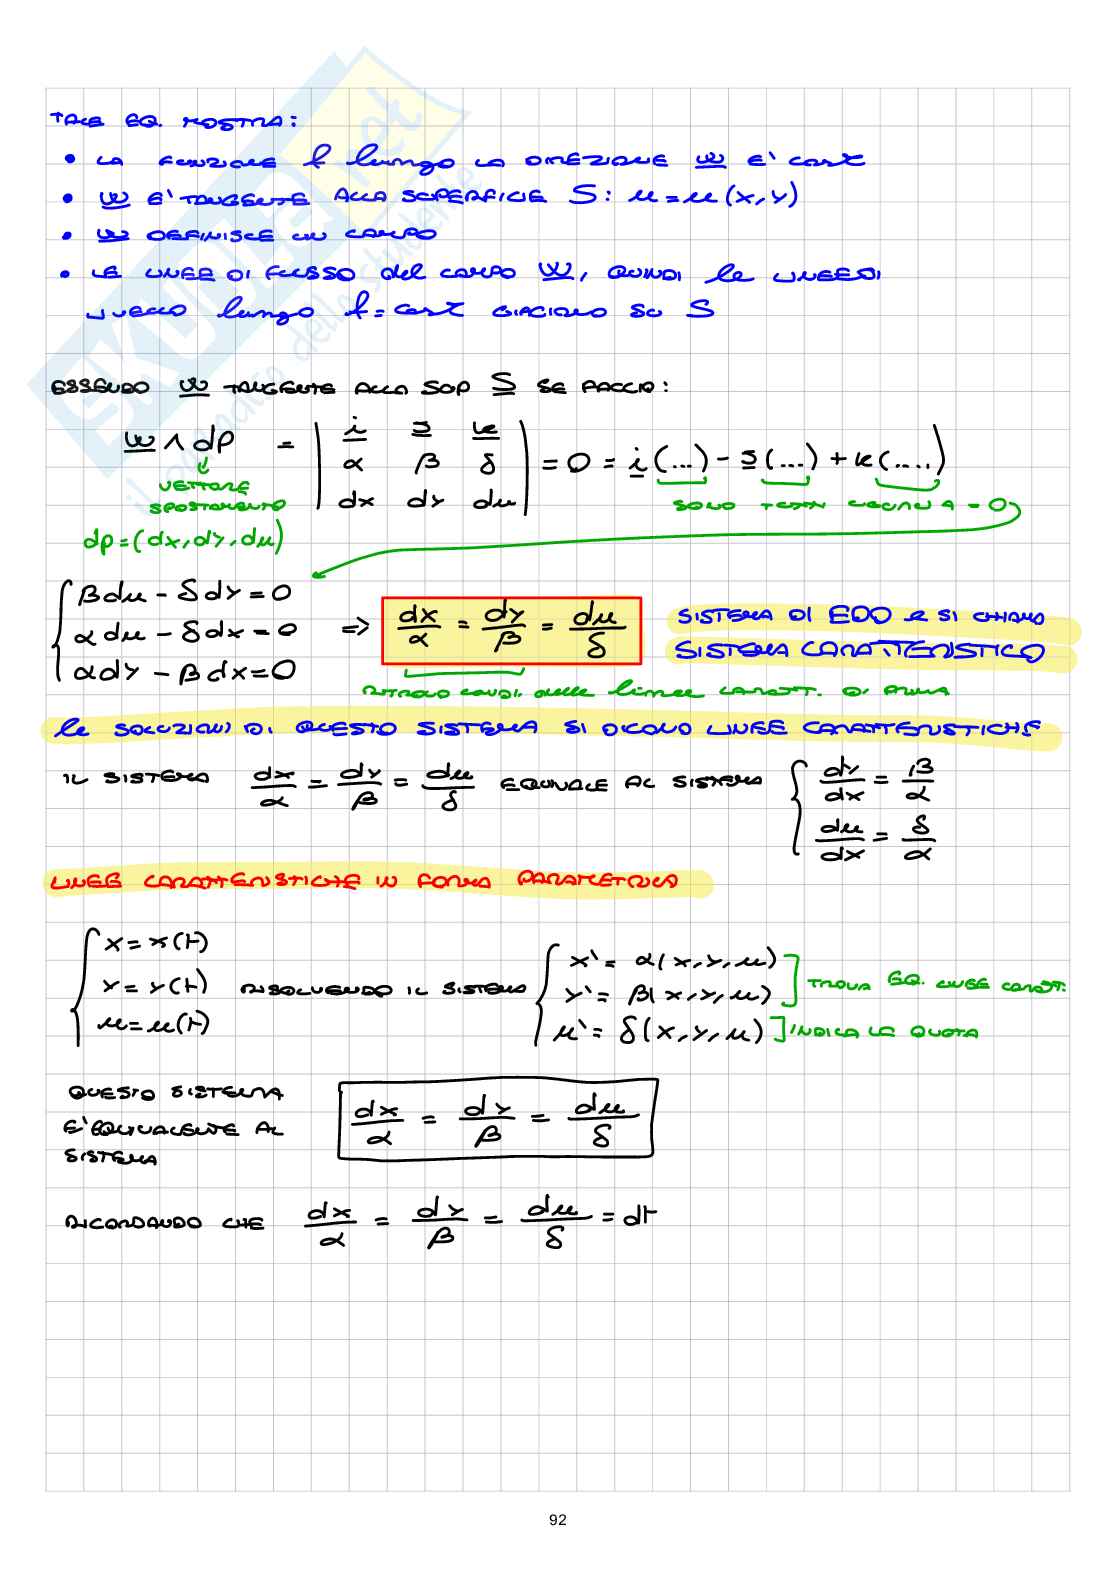 TALE EQ. MOSTRA:
• LA FUNZIONE f lungo LA DIREZIONE w E' cost
• w E' TANGENTE ALLA SUPERFICIE S: u=u(x,y)
• w DEFINISCE UN CAMPO
• LE LINEE DI FLUSSO del CAMPO w, QUINDI le LINEE DI
LIVELLO lungo f=cost GIACIONO SU S
ESSENDO w TANGENTE ALLA SUP S SE FACCIO:
w ∧ dp = | i j k | = 0 = i(...) - j(...) + k(....)
α β δ
dx dy du
VETTORE
SPOSTAMENTO
SONO TUTTI UGUALI A = 0
dp=(dx,dy,du)
βdu - δdy = 0
αdu - δdx = 0 => dx/α = dy/β = du/δ
αdy - βdx = 0
SISTEMA DI EDO e SI CHIAMA
SISTEMA CARATTERISTICO
RITROVO CONDI. delle linee CARATT. DI PRIMA
le SOLUZIONI DI QUESTO SISTEMA SI DICONO LINEE CARATTERISTICHE
IL SISTEMA dx/α = dy/β = du/δ EQUIVALE AL SISTEMA { dy/dx = β/α
du/dx = δ/α
LINEE CARATTERISTICHE IN FORMA PARAMETRICA
x=x(t)
y=y(t) RISOLVENDO IL SISTEMA
u=u(t)
x'= α(x,y,u)
y'= β(x,y,u) TROVA EQ. LINEE CARATT.
u'= δ(x,y,u) INDICA LA QUOTA
QUESTO SISTEMA
E'EQUIVALENTE AL
SISTEMA
dx/α = dy/β = du/δ
RICORDANDO CHE dx/α = dy/β = du/δ = dt
92
SKUOLA.net
il paradiso dello studente